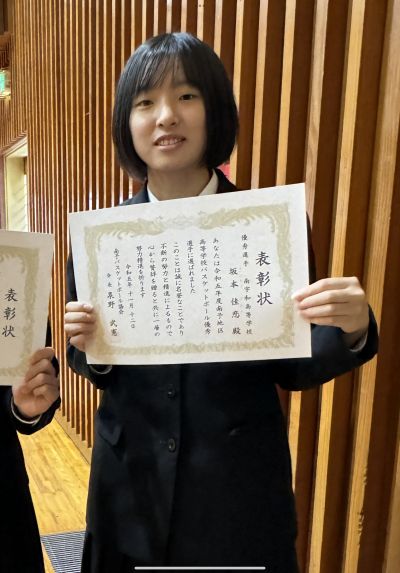 表彰状
優秀選手 南宇和高等学校
坂本 佳恋 殿
あなたは令和五年度南予地区
高等学校バスケットボール優秀
選手に選ばれました
このことは誠に名誉なことであり
不断の努力と精進によるもので
心から賛辞を贈ると共に一層の
努力精進を祈ります
令和五年十一月十二日
南予バスケットボール協会
会長 泉野 武憲
表彰状